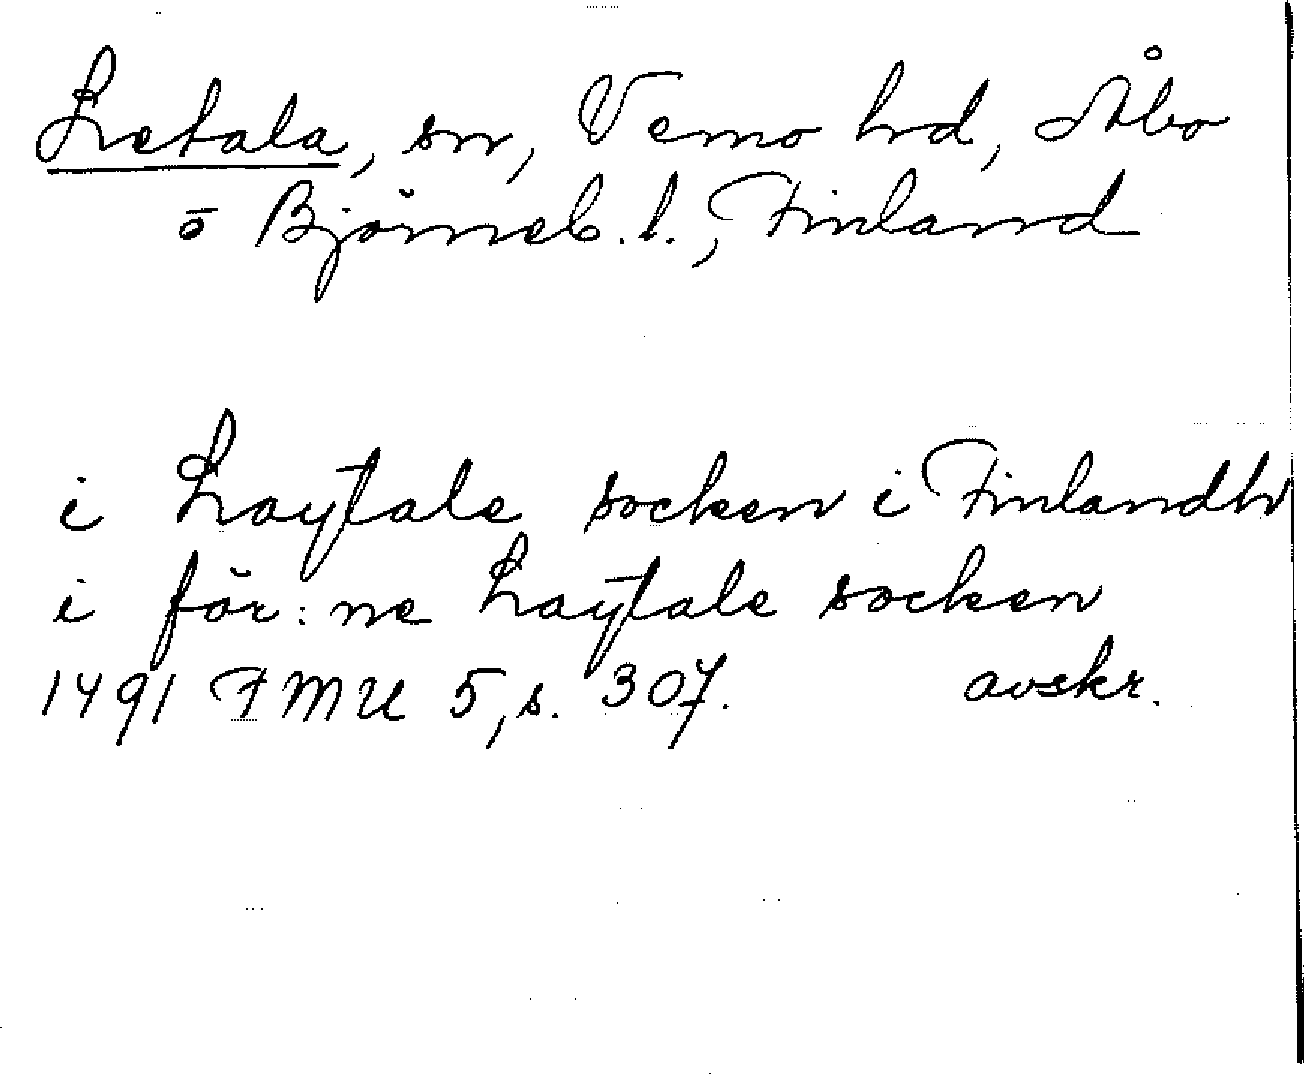 Letala, sn, Vemo hd, Åbo
o Björneb. l., Finland
i Laytale socken i Finlandh
i för:ne Laytale socken
1491 FMU 5, s. 307. avskr.